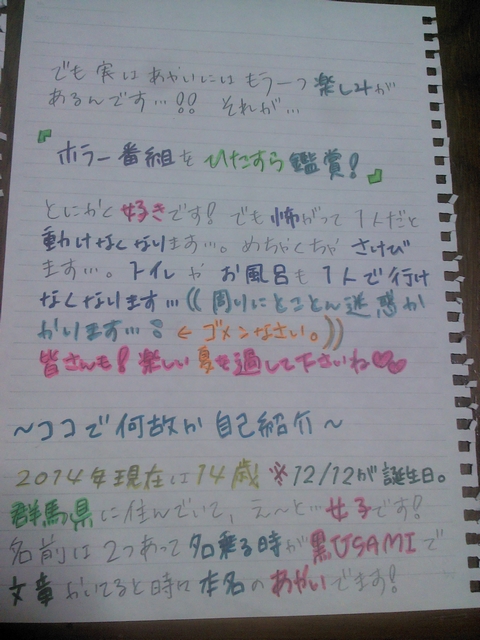 でも実はあかいにはもう一つ楽しみが
あるんです…!! それが…
『ホラー番組をひたすら鑑賞!』
とにかく好きです! でも怖がって1人だと
動けなくなります…。めちゃくちゃさけび
ます…。トイレやお風呂も1人で行け
なくなります…((周りにとことん迷惑か
かります…: ←ゴメンなさい。))
皆さんも!楽しい夏を過して下さいね♥♥
～ココで何故か自己紹介～
2014年現在は14歳 ※12/12が誕生日。
群馬県に住んでいて、え～と…女子です!
名前は2つあって名乗る時が黒USAMIで
文章かいてると時々本名のあかいでます!